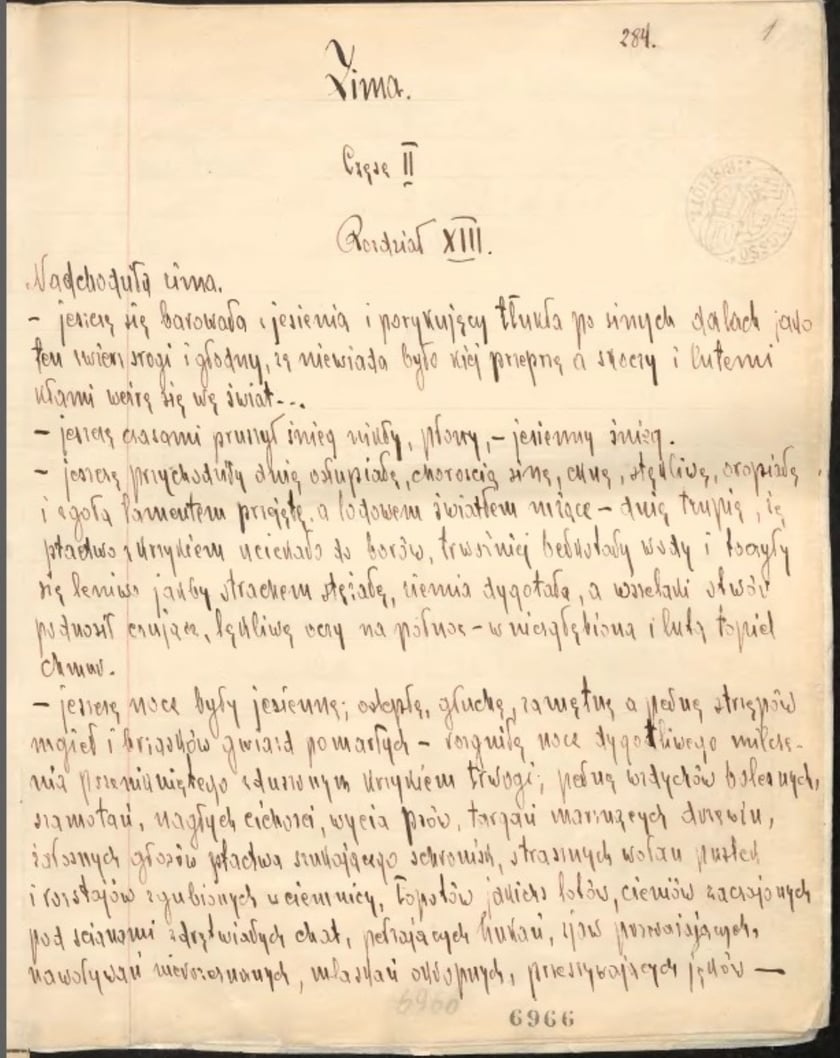 284. 1
Zima.
Część II
Rozdział XIII.
Nadchodziła zima.
- jeszczę się barowała z jesienią i porykujęcy tłukła po sinych dalach jako
ten zwierz srogi i głodny, żę niewiada było kiej przeprzę a skoczy i lutemi
kłami weżrę się wę świat...
- jeszczę czasami pruszył śnieg nikły, płowy, - jesienny śnieg.
- jeszczę przychodziły dnię osłupiałę, chorością sinę, cknę, stękliwę, oropiałę
i zgoła lamentem przejętę, a lodowem światłem mżące - dnię trupię, żę
ptactwo z krzykiem uciekało do borów, trwożniej bełkotały wody i toczyły
się leniwo jakby strachem stężałę, ziemia dygotała, a wszelaki stwór
podnosił czujące, lękliwę oczy na północ - w niezgłębioną i lutą topiel
chmur.
- jeszczę nocę były jesiennę; oślepłę, głuchę, zamętnę a pełnę strzępów
mgieł i brzasków gwiazd pomarłych - rozgniłę nocę dygotliwego milczę-
nia przenikniętego zduszonym krzykiem trwogi; pełnę wzdychów bolesnych,
szamotań, nagłych cichości, wycia psów, targań marznących drzewin,
żałosnych głosów ptactwa szukającego schronisk, strasznych wołań pustek
i rozstajów zgubionych w ciemnicy, łopotów jakichś lotów, cieniów zaczajonych
pod scianami zdrętwiałych chat, pełzających hukań, zjaw przerażających,
nawoływań nierozeznanych, mlaskań okropnych, przeszywających jęków —
6960
6966